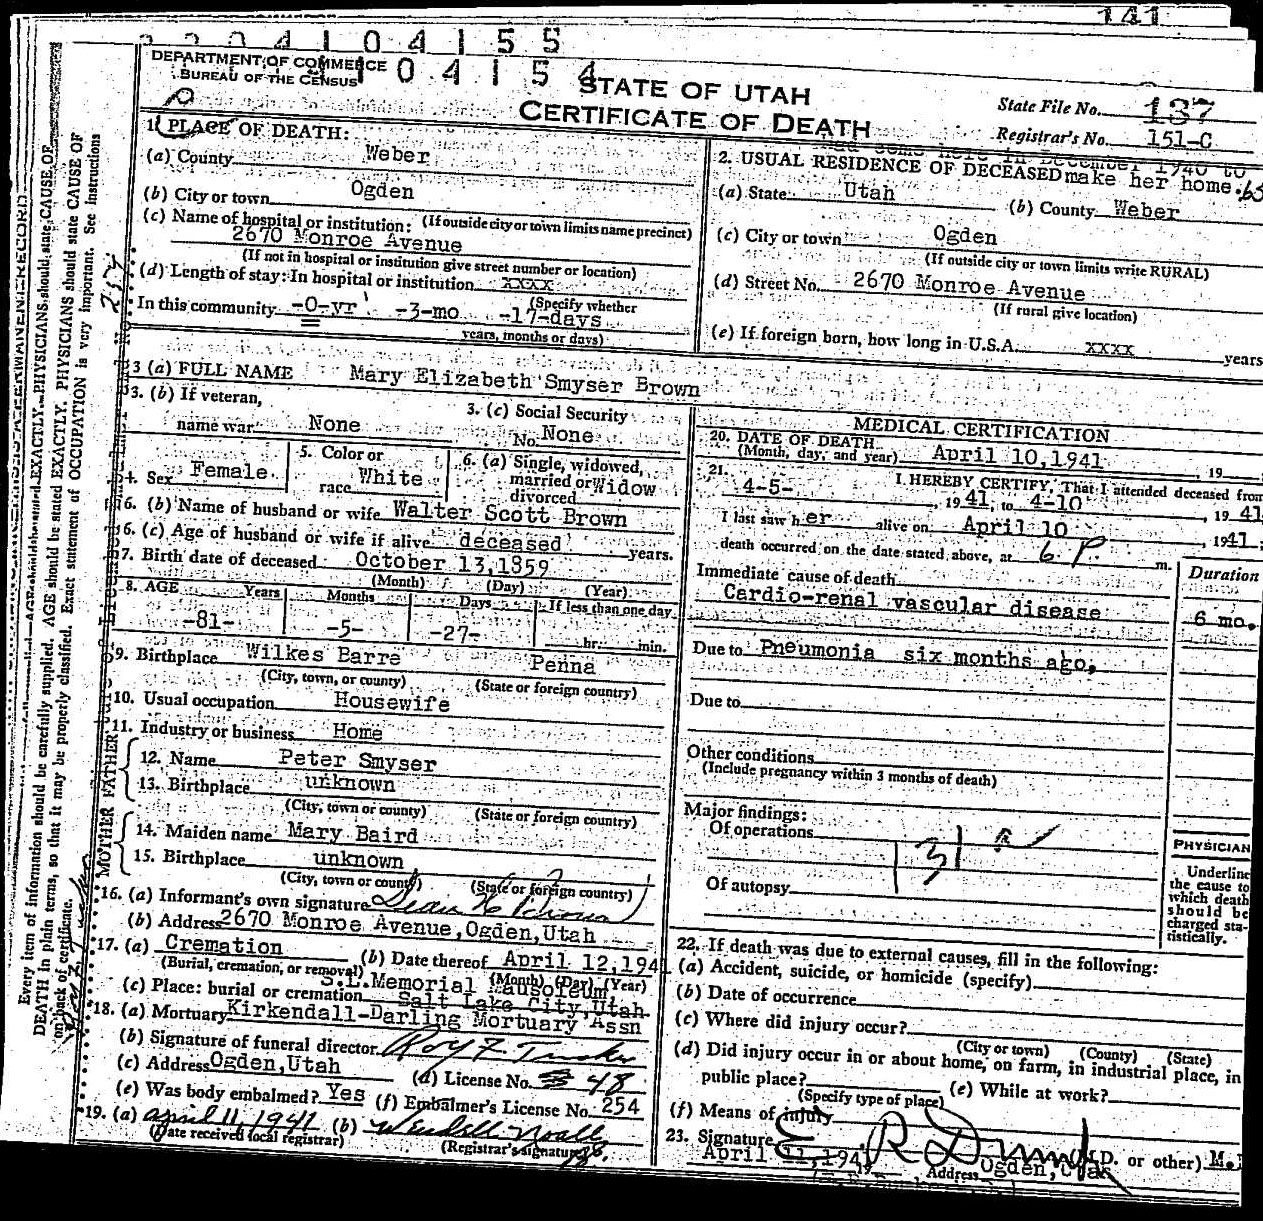 141
2 2 0 4 1 0 4 1 5 5
1 0 4 1 5 4
DEPARTMENT OF COMMERCE
BUREAU OF THE CENSUS
STATE OF UTAH
CERTIFICATE OF DEATH
State File No. 137
Registrar's No. 151-C
1. PLACE OF DEATH:
(a) County Weber
(b) City or town Ogden
(If outside city or town limits name precinct)
(c) Name of hospital or institution:
2670 Monroe Avenue
(If not in hospital or institution give street number or location)
(d) Length of stay: In hospital or institution xxxx
(Specify whether
In this community -0-yr -3-mo -17-days
years, months or days)
in December 1940 to
2. USUAL RESIDENCE OF DECEASED make her home.
(a) State Utah (b) County Weber
(c) City or town Ogden
(If outside city or town limits write RURAL)
(d) Street No. 2670 Monroe Avenue
(If rural give location)
(e) If foreign born, how long in U.S.A. xxxx years
3 (a) FULL NAME Mary Elizabeth Smyser Brown
3. (b) If veteran,
name war None
3. (c) Social Security
No. None
4. Sex Female
5. Color or
race White
6. (a) Single, widowed,
married or
divorced Widow
6. (b) Name of husband or wife Walter Scott Brown
6. (c) Age of husband or wife if alive deceased years.
7. Birth date of deceased October 13, 1859
(Month) (Day) (Year)
8. AGE Years Months Days If less than one day
-81- -5- -27- hr. min.
9. Birthplace Wilkes Barre Penna
(City, town, or county) (State or foreign country)
10. Usual occupation Housewife
11. Industry or business Home
FATHER
12. Name Peter Smyser
13. Birthplace unknown
(City, town or county) (State or foreign country)
MOTHER
14. Maiden name Mary Baird
15. Birthplace unknown
(City, town or county) (State or foreign country)
16. (a) Informant's own signature
(b) Address 2670 Monroe Avenue, Ogden, Utah
17. (a) Cremation (b) Date thereof April 12, 194
(Burial, cremation, or removal) (Month) (Day) (Year)
S.L. Memorial Mausoleum
(c) Place: burial or cremation Salt Lake City, Utah
18. (a) Mortuary Kirkendall-Darling Mortuary Assn
(b) Signature of funeral director
(c) Address Ogden, Utah (d) License No. 48
(e) Was body embalmed? Yes (f) Embalmer's License No. 254
19. (a) April 11, 1941 (b)
(Date received local registrar) (Registrar's signature)
MEDICAL CERTIFICATION
20. DATE OF DEATH
(Month, day, and year) April 10, 1941, 19
21. I HEREBY CERTIFY, That I attended deceased from
4-5-, 1941, to 4-10, 1941
I last saw her alive on April 10, 1941;
death occurred on the date stated above, at 6 P. m.
Duration
Immediate cause of death
Cardio-renal vascular disease 6 mo.
Due to Pneumonia six months ago,
Due to
Other conditions
(Include pregnancy within 3 months of death)
Major findings:
Of operations
131
Of autopsy
PHYSICIAN
Underline
the cause to
which death
should be
charged sta-
tistically.
22. If death was due to external causes, fill in the following:
(a) Accident, suicide, or homicide (specify)
(b) Date of occurrence
(c) Where did injury occur?
(City or town) (County) (State)
(d) Did injury occur in or about home, on farm, in industrial place, in
public place? (e) While at work?
(Specify type of place)
(f) Means of injury
23. Signature (M.D. or other) M.
April 11, 194 Address Ogden, Utah
Every item of information should be carefully supplied. AGE should be stated EXACTLY. PHYSICIANS should state CAUSE OF
DEATH in plain terms, so that it may be properly classified. Exact statement of OCCUPATION is very important. See instructions
on back of certificate.